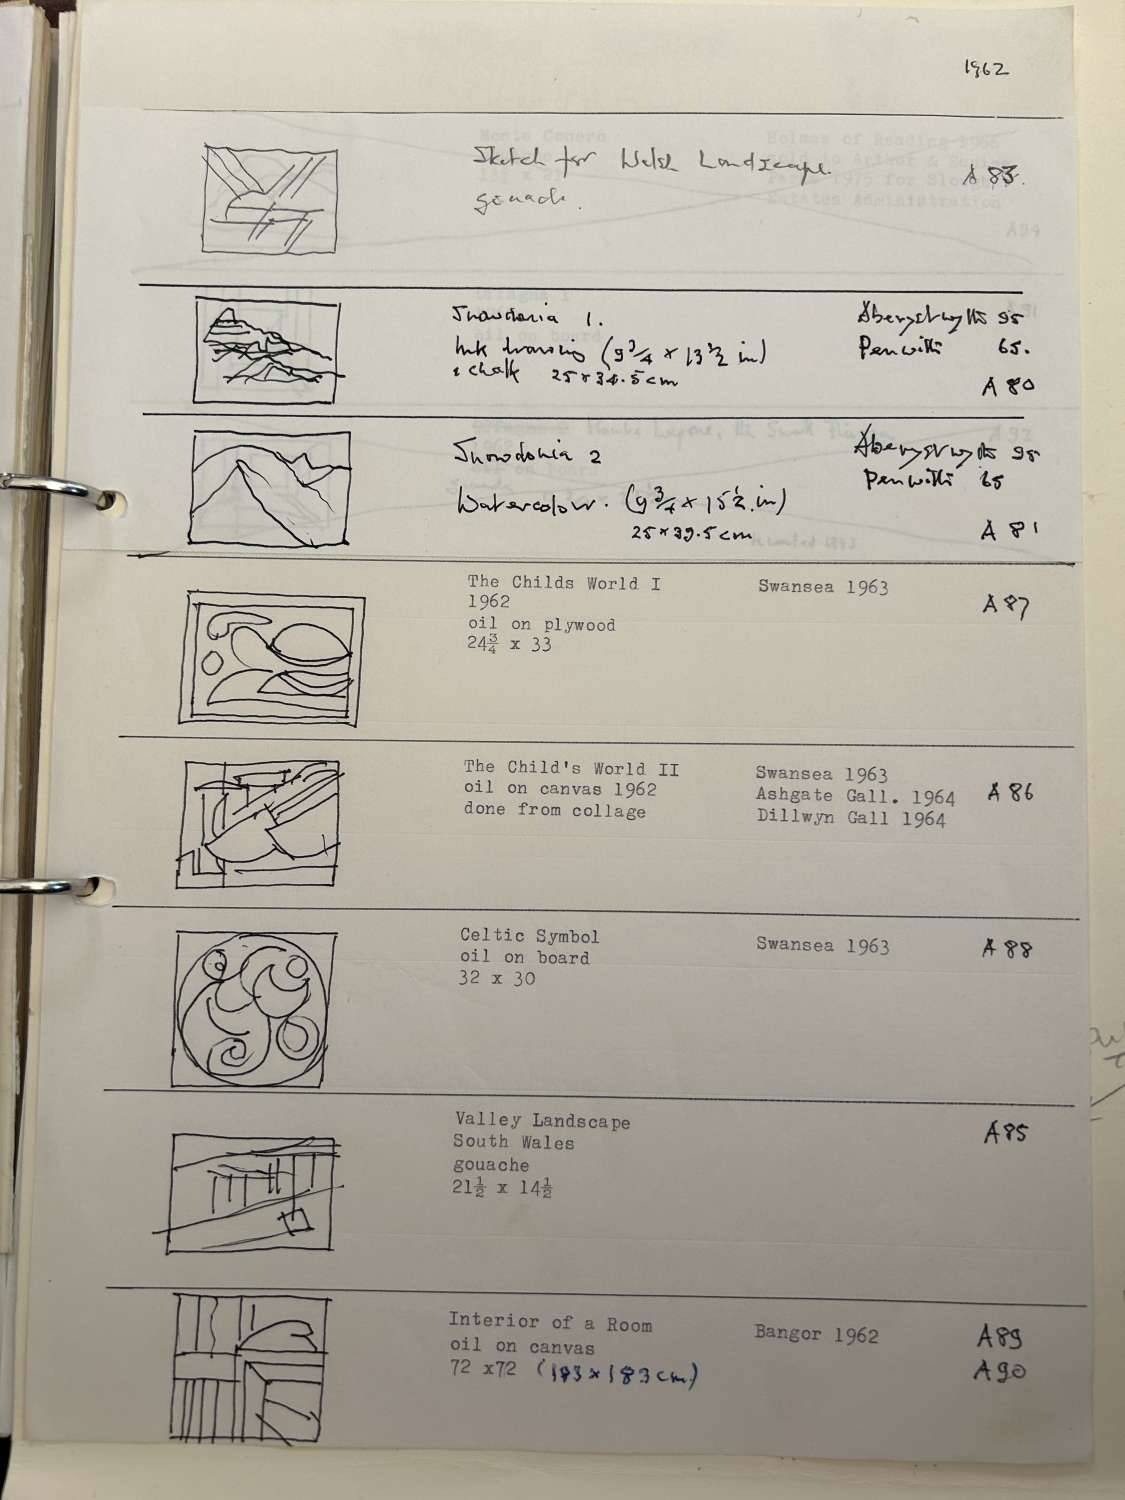 1962
Sketch for Welsh Landscape. A 83.
gouache.
Snowdonia 1. Aberystwyth 95
Ink drawing (9 3/4 x 13 1/2 in) Penwith 65.
& chalk 25 x 34.5 cm
A 80
Snowdonia 2 Aberystwyth 95
Penwith 65
Watercolour. (9 3/4 x 15 1/2 in)
25 x 39.5 cm A 81
The Childs World I Swansea 1963
1962 A 87
oil on plywood
24 3/4 x 33
The Child's World II Swansea 1963
oil on canvas 1962 Ashgate Gall. 1964 A 86
done from collage Dillwyn Gall 1964
Celtic Symbol Swansea 1963 A 88
oil on board
32 x 30
Valley Landscape A85
South Wales
gouache
21½ x 14½
Interior of a Room Bangor 1962 A89
oil on canvas
72 x72 (183 x 183 cm) A90